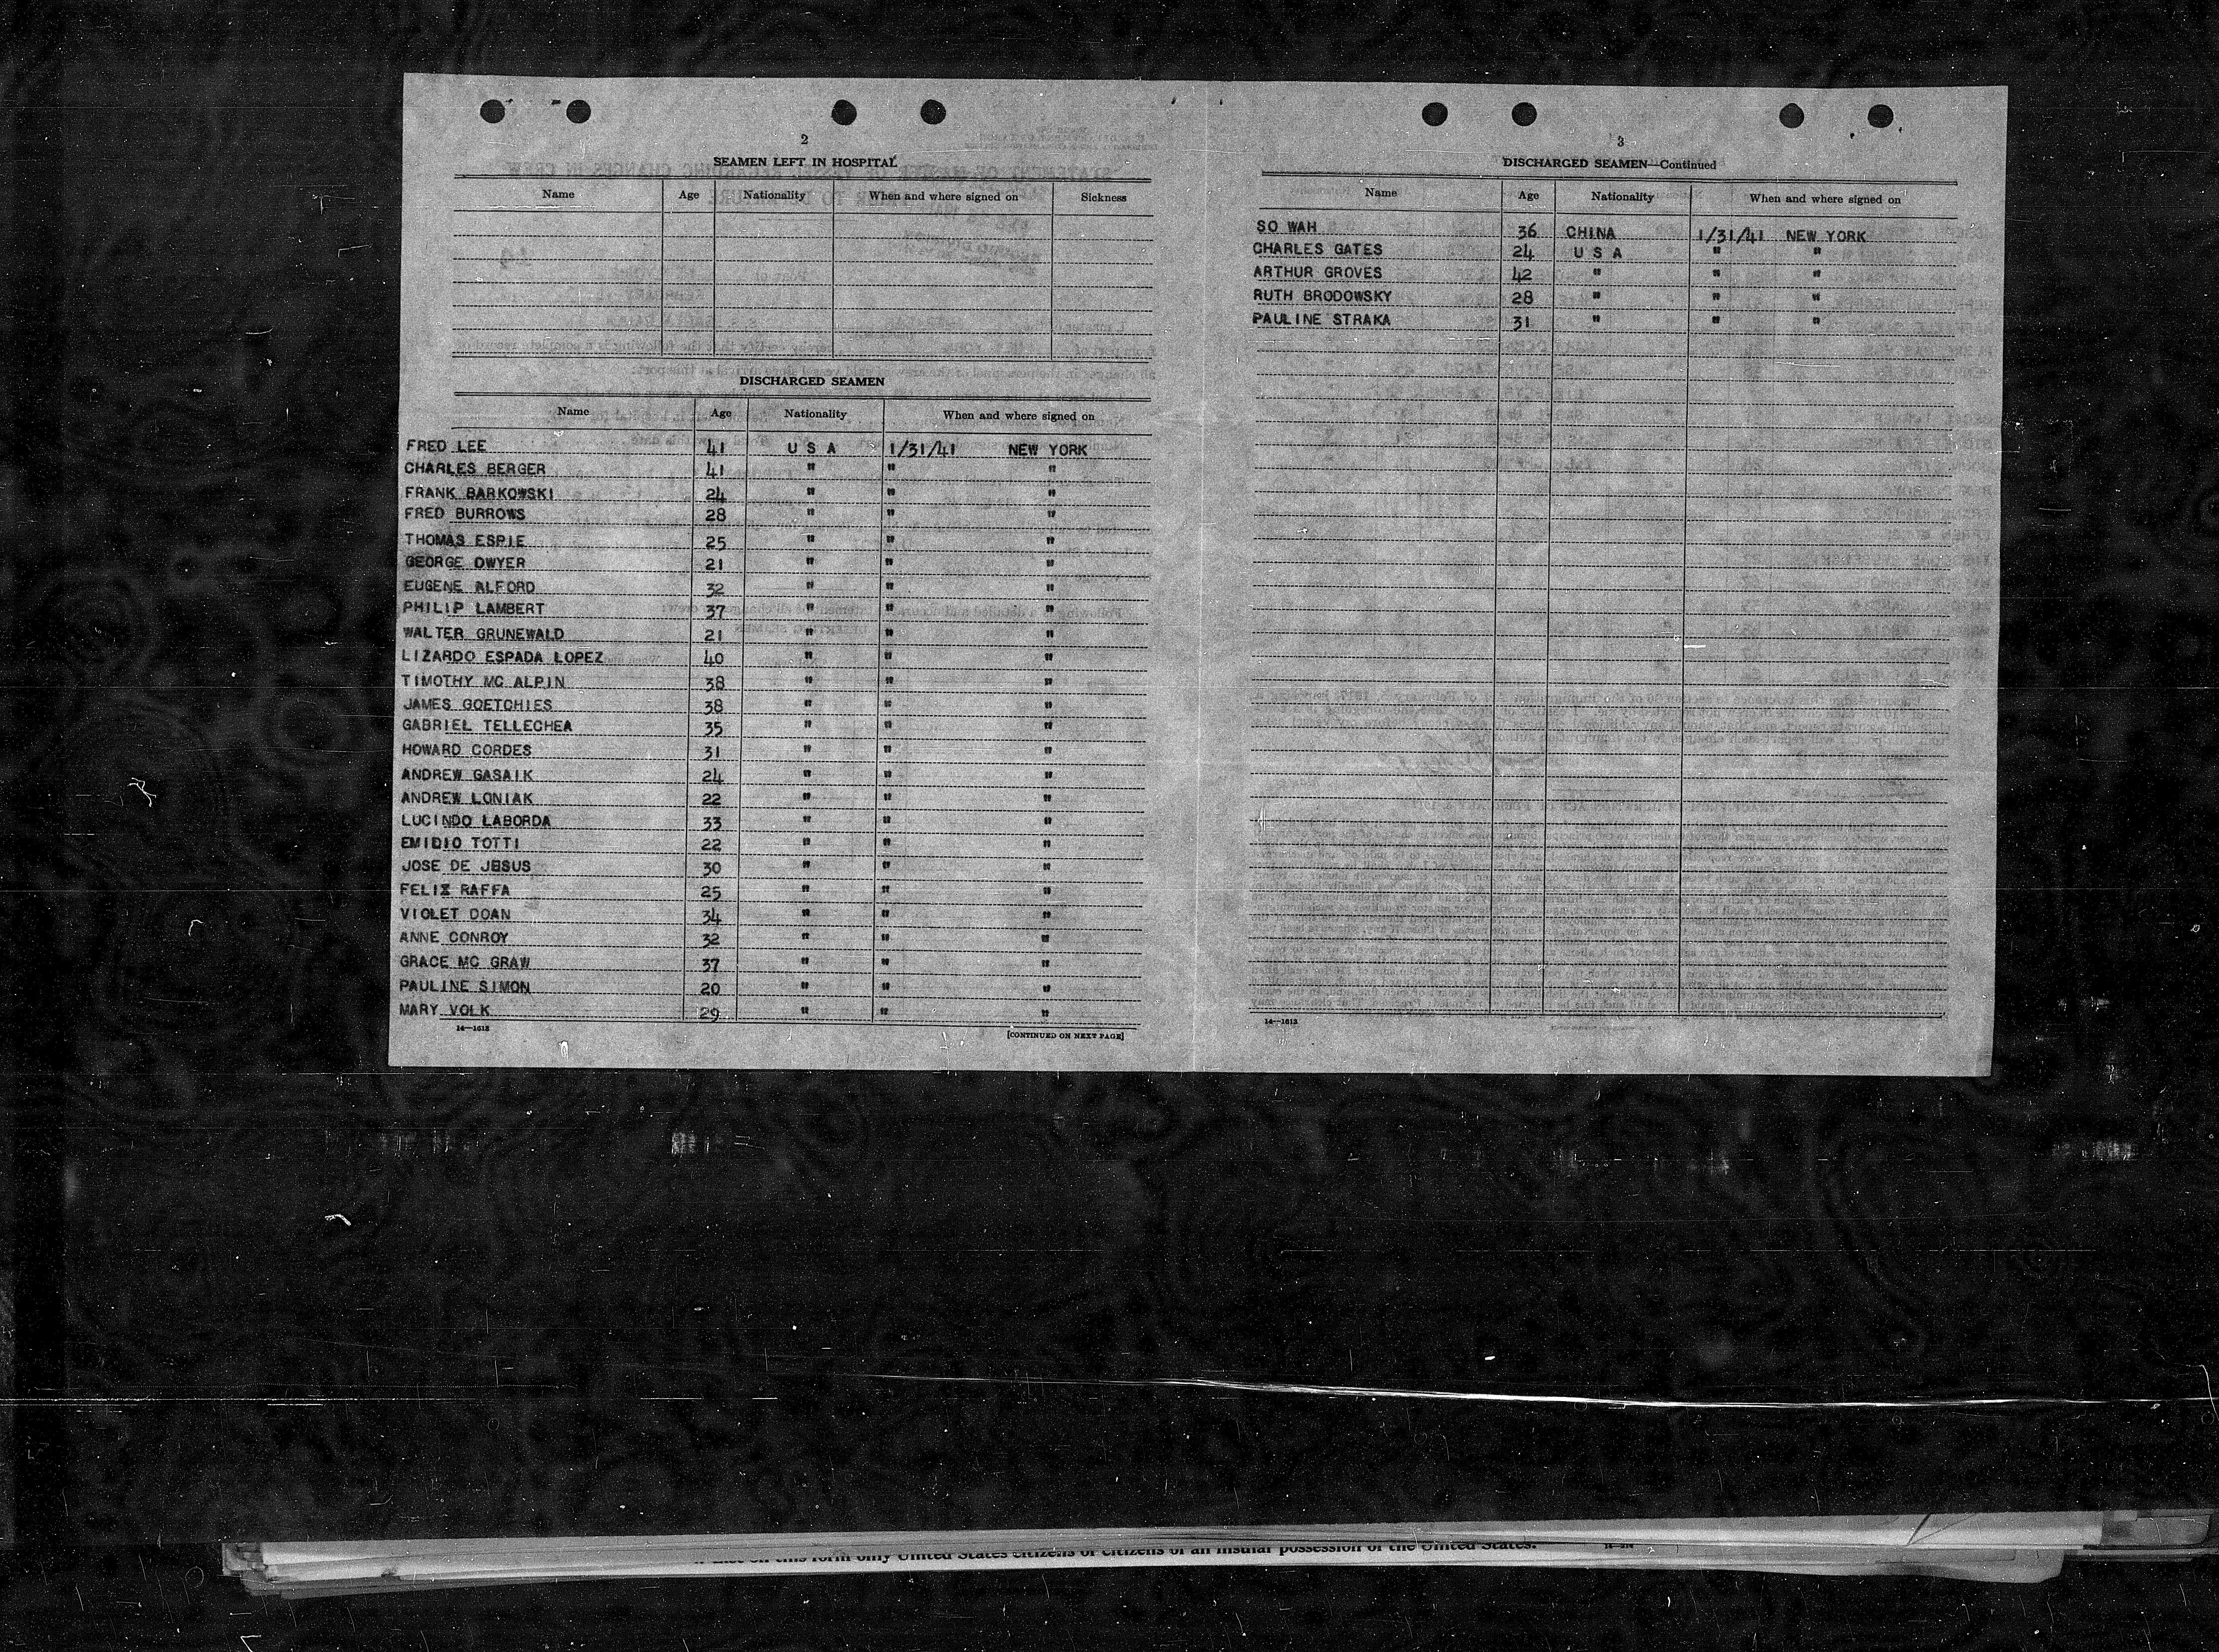 2
SEAMEN LEFT IN HOSPITAL
Name Age Nationality When and where signed on Sickness
DISCHARGED SEAMEN
Name Age Nationality When and where signed on
FRED LEE 41 U S A 1/31/41 NEW YORK
CHARLES BERGER 41 " " "
FRANK BARKOWSKI 24 " " "
FRED BURROWS 28 " " "
THOMAS ESPIE 25 " " "
GEORGE DWYER 21 " " "
EUGENE ALFORD 32 " " "
PHILIP LAMBERT 37 " " "
WALTER GRUNEWALD 21 " " "
LIZARDO ESPADA LOPEZ 40 " " "
TIMOTHY MC ALPIN 38 " " "
JAMES GOETCHIES 38 " " "
GABRIEL TELLECHEA 35 " " "
HOWARD CORDES 31 " " "
ANDREW GASAIK 24 " " "
ANDREW LONIAK 22 " " "
LUCINDO LABORDA 33 " " "
EMIDIO TOTTI 22 " " "
JOSE DE JESUS 30 " " "
FELIX RAFFA 25 " " "
VIOLET DOAN 34 " " "
ANNE CONROY 32 " " "
GRACE MC GRAW 37 " " "
PAULINE SIMON 20 " " "
MARY VOLK 29 " " "
14—1613
[CONTINUED ON NEXT PAGE]
3
DISCHARGED SEAMEN—Continued
Name Age Nationality When and where signed on
SO WAH 36 CHINA 1/31/41 NEW YORK
CHARLES GATES 24 U S A " "
ARTHUR GROVES 42 " " "
RUTH BRODOWSKY 28 " " "
PAULINE STRAKA 31 " " "
14—1613
on this form only United States citizens or citizens of an insular possession of the United States.